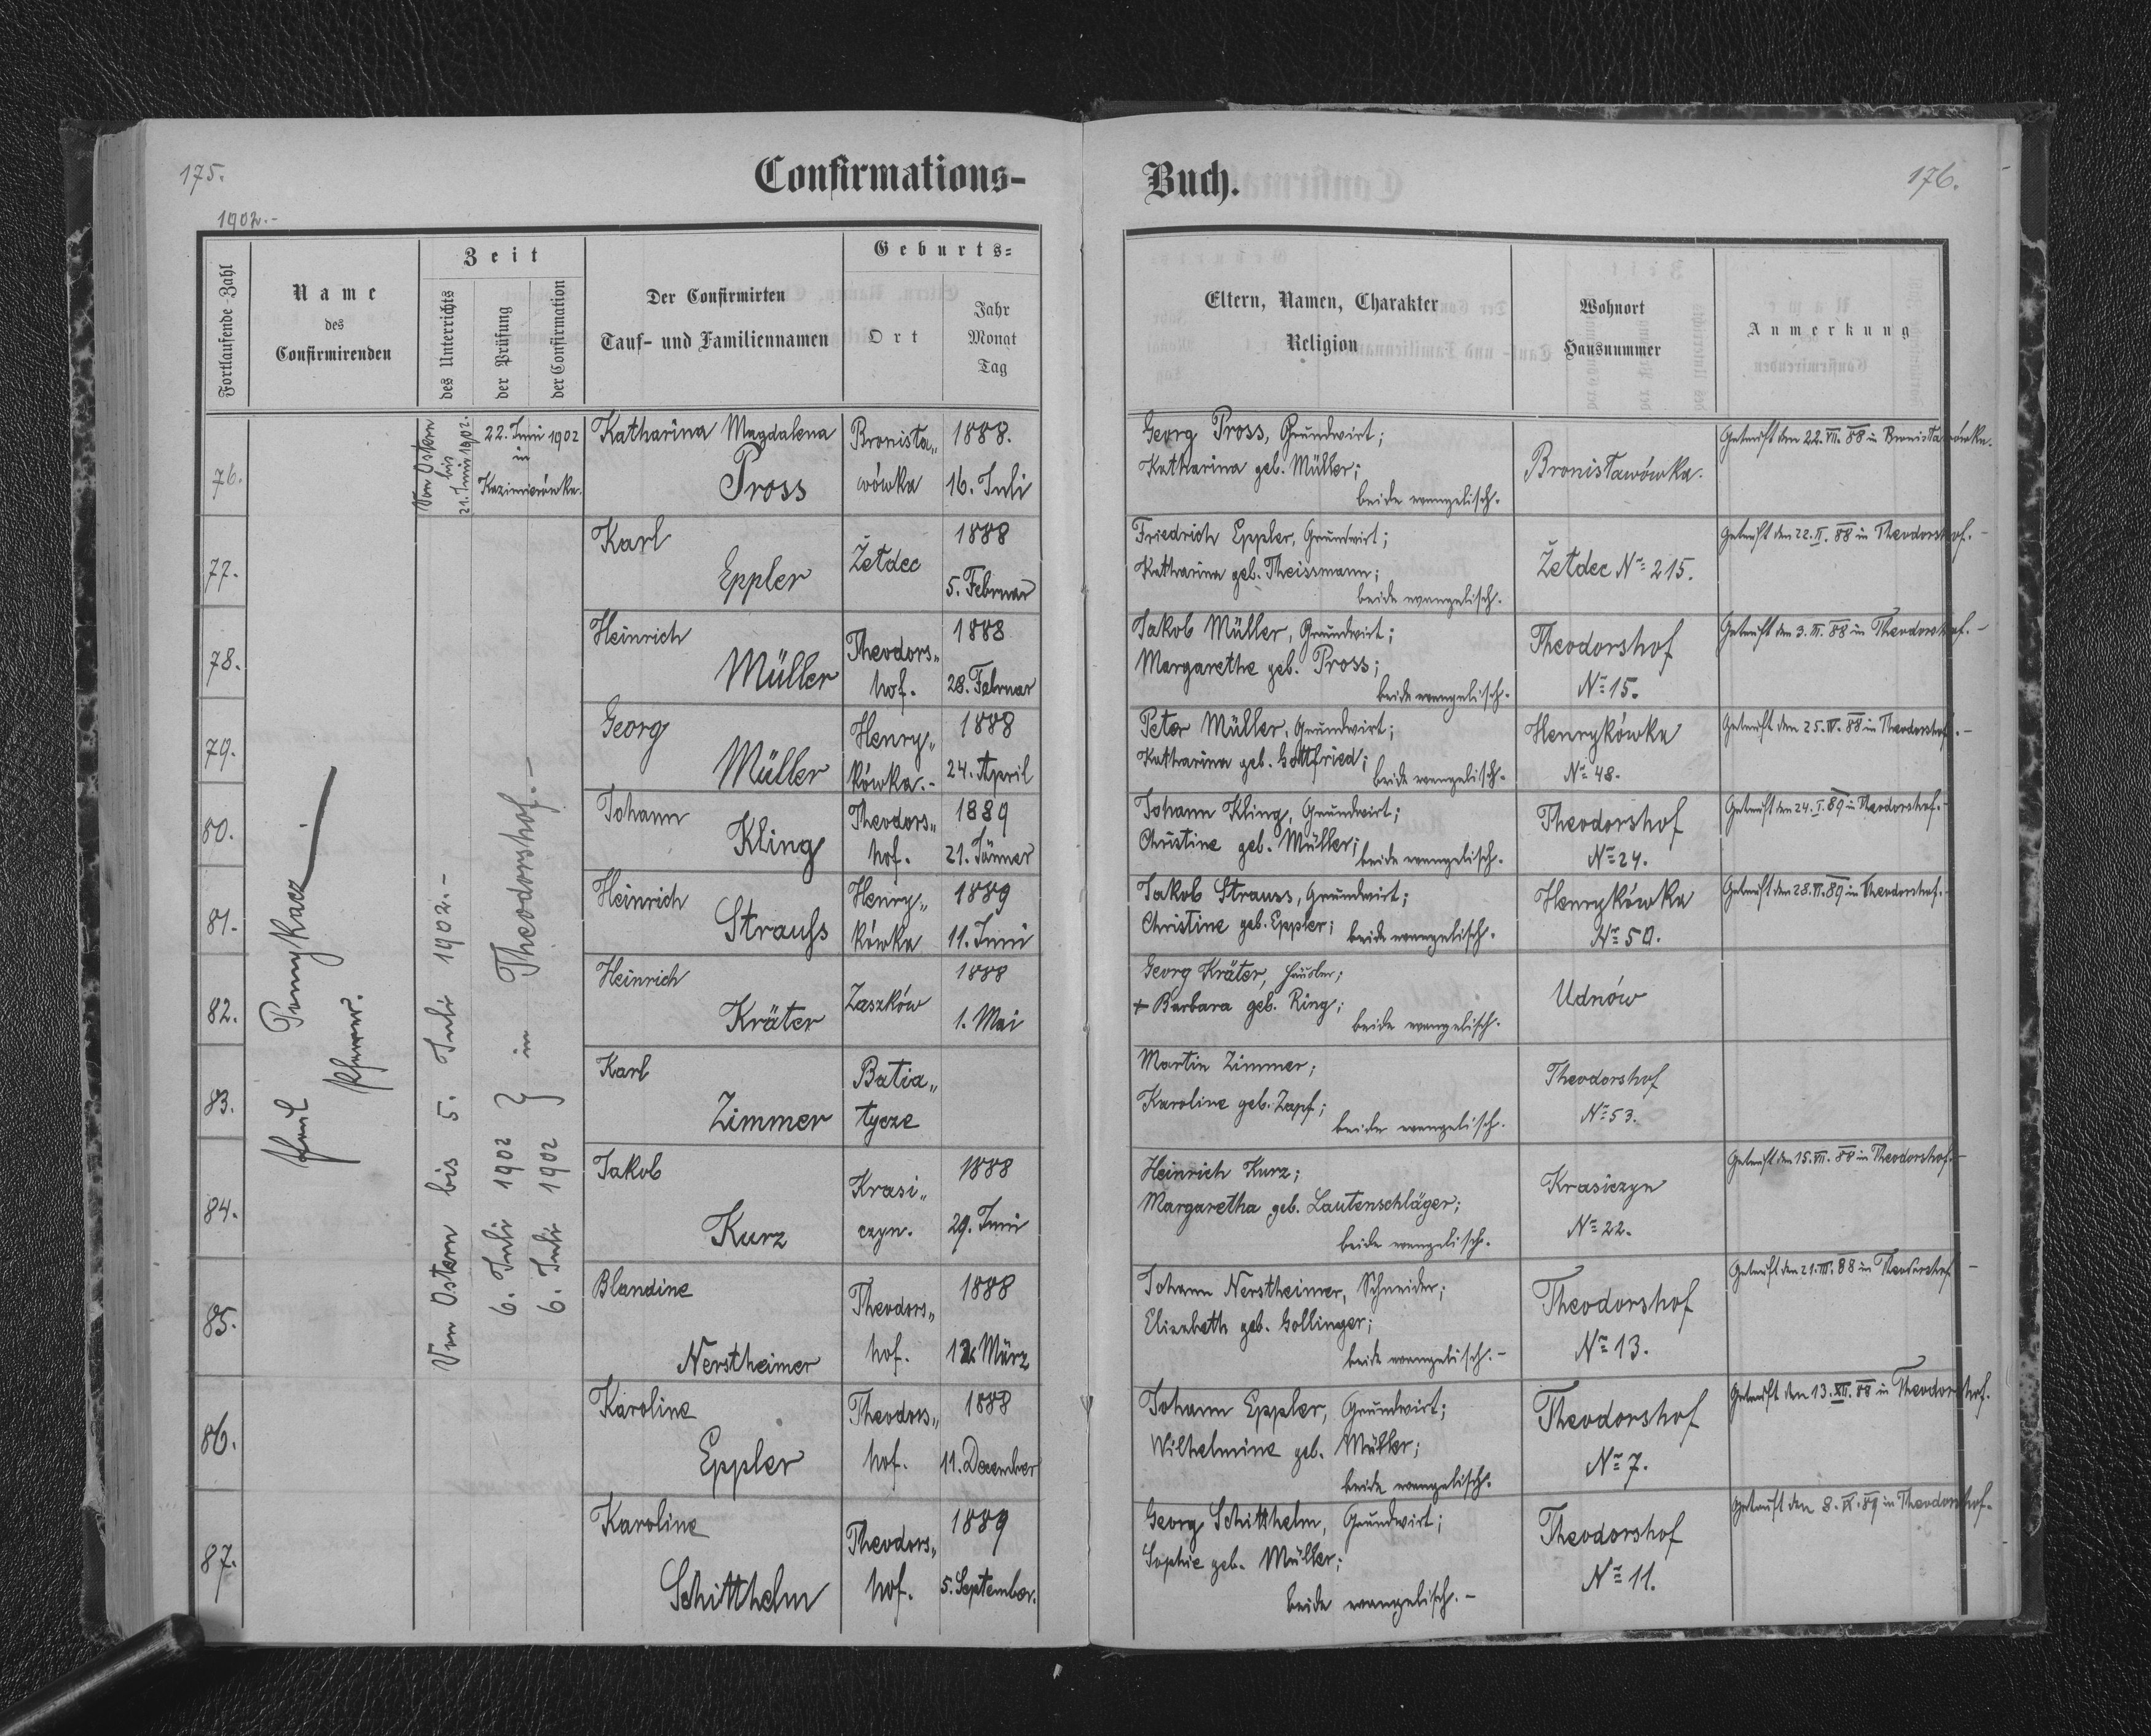 175.
Confirmations-
1902.-
Fortlaufende Zahl
Name
des
Confirmirenden
Zeit
des Unterrichts
der Prüfung
der Confirmation
Der Confirmirten
Tauf- und Familiennamen
Geburts-
Ort
Jahr
Monat
Tag
Paul
Pfarrer.
76.
Von Ostern
bis
21. Juni 1902.
22. Juni 1902
in
Kazimirówka.
Katharina Magdalena
Pross
Bronisła„
wówka
1888.
16. Juli
Von Ostern bis 5. Juli 1902.-
6. Juli 1902
6. Juli 1902
} in Theodorshof.-
77.
Karl
Eppler
Żełdec
1888
5. Februar
78.
Heinrich
Müller
Theodors„
hof.
1888
28. Februar
79.
Georg
Müller
Henry„
kówka.-
1888
24. April
80.
Johann
Kling
Theodors„
hof.
1889
21. Jänner
81.
Heinrich
Strauss
Henry„
kówka
1889
11. Juni
82.
Heinrich
Kräter
Zaszków
1888
1. Mai
83.
Karl
Zimmer
Batia„
tycze
84.
Jakob
Kurz
Krasi„
czyn.
1888
29. Juni
85.
Blandine
Nerstheimer
Theodors„
hof.
1888
März
86.
Karoline
Eppler
Theodors„
hof.
1888
11. December
87.
Karoline
Schitthelm
Theodors„
hof.
1889
5. September.
Buch.
176.
Eltern, Namen, Charakter
Religion
Wohnort
Hausnummer
Anmerkung
Georg Pross, Grundwirt;
Katharina geb. Müller;
beide evangelisch.
Bronisławówka.
Getauft den 22. VII. 88 in Bronisławówka.
Friedrich Eppler, Grundwirt;
Katharina geb. Theissmann;
beide evangelisch.
Żełdec No 215.
Getauft den 22. II. 88 in Theodorshof.-
Jakob Müller, Grundwirt;
Margarethe geb. Pross;
beide evangelisch.
Theodorshof
No 15.
Getauft den 3. III. 88 in Theodorshof.-
Peter Müller, Grundwirt;
Katharina geb. Gottfried;
beide evangelisch.
Henrykówka
No 48.
Getauft den 25. IV. 88 in Theodorshof.-
Johann Kling, Grundwirt;
Christine geb. Müller;
beide evangelisch.
Theodorshof
No 24.
Getauft den 24. I. 89 in Theodorshof.-
Jakob Strauss, Grundwirt;
Christine geb. Eppler;
beide evangelisch.
Henrykówka
No 50.
Getauft den 28. VI. 89 in Theodorshof.-
Georg Kräter, Häusler;
+ Barbara geb. Ring;
beide evangelisch.
Udnów
Martin Zimmer;
Karoline geb. Zapf;
beide evangelisch.
Theodorshof
No 53.
Heinrich Kurz;
Margaretha geb. Lautenschläger;
beide evangelisch.
Krasiczyn
No 22.
Getauft den 15. VII. 88 in Theodorshof.-
Johann Nerstheimer, Schneider;
Elisabeth geb. Gollinger;
beide evangelisch.-
Theodorshof
No 13.
Getauft den 21. III. 88 in Theodorshof.-
Johann Eppler, Grundwirt;
Wilhelmine geb. Müller;
beide evangelisch.
Theodorshof
No 7.
Getauft den 13. XII. 88 in Theodorshof.
Georg Schitthelm, Grundwirt;
Sophie geb. Müller;
beide evangelisch.-
Theodorshof
No 11.
Getauft den 8. IX. 89 in Theodorshof.